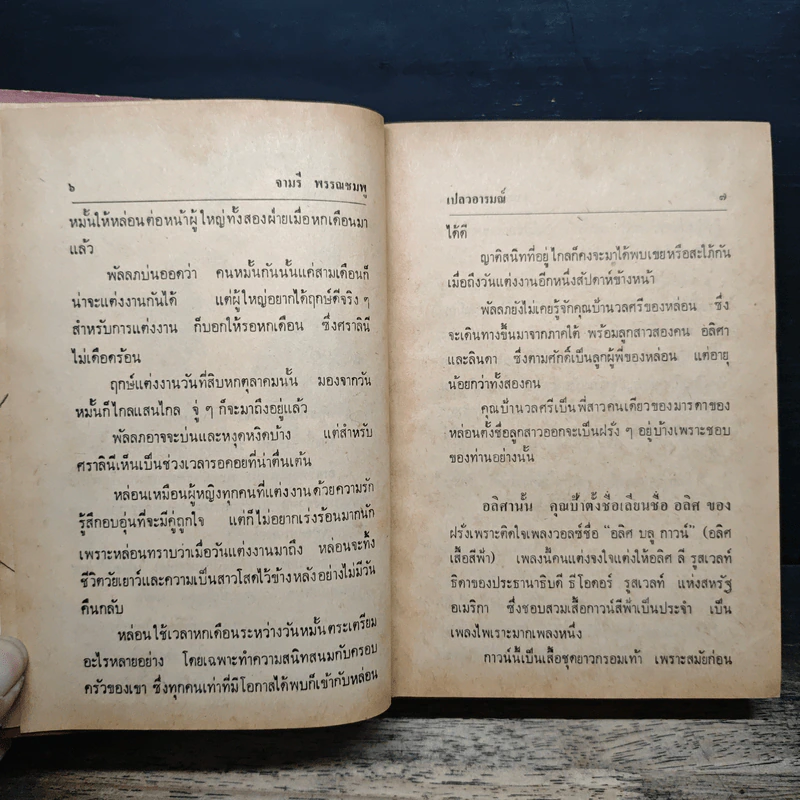 ๖ จามรี พรรณชมพู
หมั้นให้หล่อนต่อหน้าผู้ใหญ่ทั้งสองฝ่ายเมื่อหกเดือนมา
แล้ว
พัลลภบ่นออดว่า คนหมั้นกันนั้นแค่สามเดือนก็
น่าจะแต่งงานกันได้ แต่ผู้ใหญ่อยากได้ฤกษ์ดีจริง ๆ
สำหรับการแต่งงาน ก็บอกให้รอหกเดือน ซึ่งศราลินี
ไม่เดือดร้อน
ฤกษ์แต่งงานวันที่สิบหกตุลาคมนั้น มองจากวัน
หมั้นก็ไกลแสนไกล จู่ ๆ ก็จะมาถึงอยู่แล้ว
พัลลภอาจจะบ่นและหงุดหงิดบ้าง แต่สำหรับ
ศราลินีเห็นเป็นช่วงเวลารอคอยที่น่าตื่นเต้น
หล่อนเหมือนผู้หญิงทุกคนที่แต่งงานด้วยความรัก
รู้สึกอบอุ่นที่จะมีคู่ถูกใจ แต่ก็ไม่อยากเร่งร้อนมากนัก
เพราะหล่อนทราบว่าเมื่อวันแต่งงานมาถึง หล่อนจะทิ้ง
ชีวิตวัยเยาว์และความเป็นสาวโสดไว้ข้างหลังอย่างไม่มีวัน
คืนกลับ
หล่อนใช้เวลาหกเดือนระหว่างวันหมั้นตระเตรียม
อะไรหลายอย่าง โดยเฉพาะทำความสนิทสนมกับครอบ
ครัวของเขา ซึ่งทุกคนเท่าที่มีโอกาสได้พบก็เข้ากับหล่อน
เปลวอารมณ์ ๗
ได้ดี
ญาติสนิทที่อยู่ไกลก็คงจะมาได้พบเขยหรือสะใภ้กัน
เมื่อถึงวันแต่งงานอีกหนึ่งสัปดาห์ข้างหน้า
พัลลภยังไม่เคยรู้จักคุณป้านวลศรีของหล่อน ซึ่ง
จะเดินทางขึ้นมาจากภาคใต้ พร้อมลูกสาวสองคน อลิศา
และลินดา ซึ่งตามศักดิ์เป็นลูกผู้พี่ของหล่อน แต่อายุ
น้อยกว่าทั้งสองคน
คุณป้านวลศรีเป็นพี่สาวคนเดียวของมารดาของ
หล่อนตั้งชื่อลูกสาวออกจะเป็นฝรั่ง ๆ อยู่บ้างเพราะชอบ
ของท่านอย่างนั้น
อลิศานั้น คุณป้าตั้งชื่อเลียนชื่อ อลิศ ของ
ฝรั่งเพราะติดใจเพลงวอลซ์ชื่อ “อลิศ บลู กาวน์” (อลิศ
เสื้อสีฟ้า) เพลงนี้คนแต่งจงใจแต่งให้อลิศ ลี รูสเวลท์
ธิดาของประธานาธิบดี ธีโอดอร์ รูสเวลท์ แห่งสหรัฐ
อเมริกา ซึ่งชอบสวมเสื้อกาวน์สีฟ้าเป็นประจำ เป็น
เพลงไพเราะมากเพลงหนึ่ง
กาวน์นี้เป็นเสื้อชุดยาวกรอมเท้า เพราะสมัยก่อน